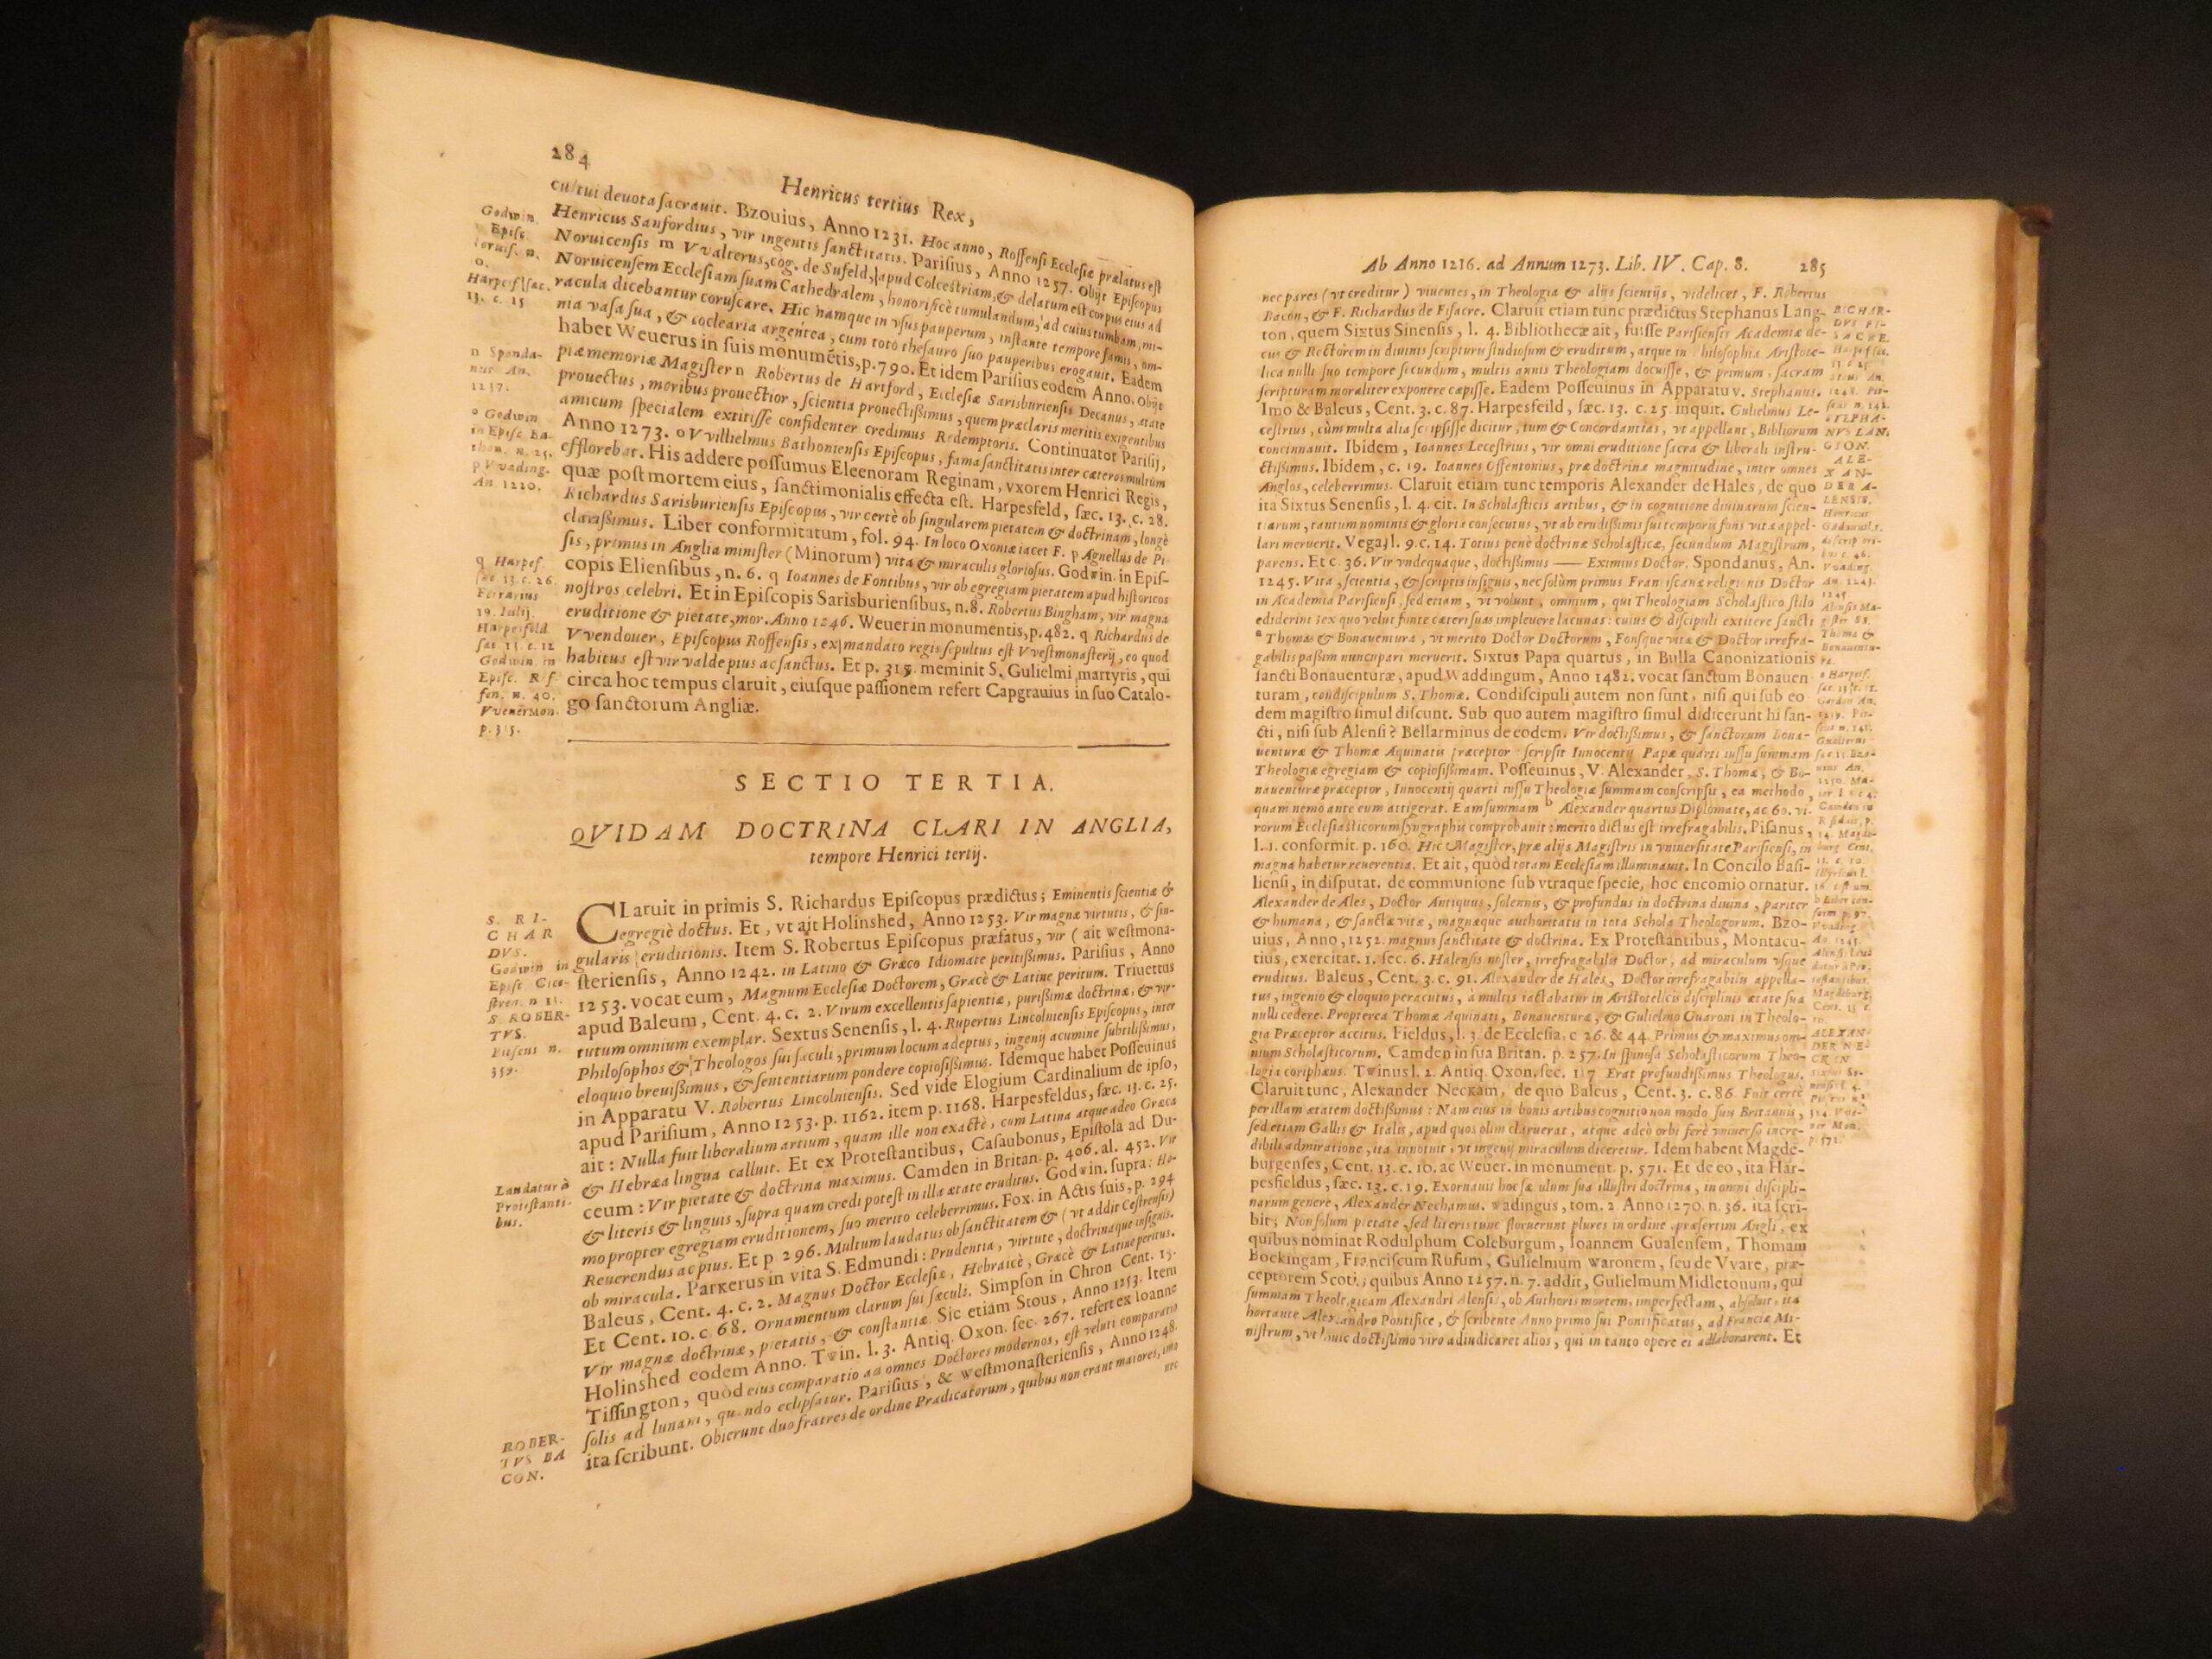 284
Henricus tertius Rex,
cultui deuota sacrauit. Bzouius, Anno 1231. Hoc anno, Roffensi Ecclesiæ prælatus est
Henricus Sanfordius, vir ingentis sanctitatis. Parisius, Anno 1257. Obijt Episcopus
Noruicensis m Vvalterus, cog. de Sufeld, apud Colcestriam, & delatum est corpus eius ad
Noruicensem Ecclesiam suam Cathedralem, honorificè tumulandum, ad cuius tumbam, mi-
racula dicebantur coruscare. Hic namque in vsus pauperum, instante tempore famis, om-
nia vasa sua, & coclearia argentea, cum toto thesauro suo pauperibus erogauit. Eadem
habet Weuerus in suis monumētis, p. 790. Et idem Parisius eodem Anno. Obijt
piæ memoriæ Magister n Robertus de Hartford, Ecclesiæ Sarisburiensis Decanus, ætate
prouectus, moribus prouectior, scientia prouectißimus, quem præclaris meritis exigentibus
amicum specialem extitisse confidenter credimus Redemptoris. Continuator Parisij,
Anno 1273. o Vvillielmus Bathoniensis Episcopus, fama sanctitatis inter cæteros multùm
efflorebat. His addere possumus Eleenoram Reginam, vxorem Henrici Regis,
quæ post mortem eius, sanctimonialis effecta est. Harpesfeld, sæc. 13. c. 28.
Richardus Sarisburiensis Episcopus, vir certè ob singularem pietatem & doctrinam, longè
clarißimus. Liber conformitatum, fol. 94. In loco Oxoniæ iacet F. p Agnellus de Pi-
sis, primus in Anglia minister (Minorum) vita & miraculis gloriosus. Godwin. in Epis-
copis Eliensibus, n. 6. q Ioannes de Fontibus, vir ob egregiam pietatem apud historicos
nostros celebri. Et in Episcopis Sarisburiensibus, n. 8. Robertus Bingham, vir magna
eruditione & pietate, mor. Anno 1246. Weuer in monumentis, p. 482. q Richardus de
Vvendouer, Episcopus Roffensis, ex mandato regis sepultus est Vvestmonasterij, eo quod
habitus est vir valde pius ac sanctus. Et p. 315. meminit S. Gulielmi martyris, qui
circa hoc tempus claruit, eiusque passionem refert Capgrauius in suo Catalo-
go sanctorum Angliæ.
Godwin.
Episc.
n.
o.
Harpesf. sæc.
13. c. 15
n Sponda-
nus An.
1257.
o Godwin
in Episc. Ba-
thon. n. 25.
p Vvading.
An. 1220.
q Harpes.
sæc. 13. c. 26.
Ferrarius
19. Iulij.
Harpesfeld
sæc. 13. c. 12
Godwin. in
Episc. Rof-
fen. n. 40.
Vveuer Mon.
p. 315.
SECTIO TERTIA.
QVIDAM DOCTRINA CLARI IN ANGLIA,
tempore Henrici tertij.
CLaruit in primis S. Richardus Episcopus prædictus; Eminentis scientiæ &
egregiè doctus. Et, vt ait Holinshed, Anno 1253. Vir magnæ virtutis, & sin-
gularis eruditionis. Item S. Robertus Episcopus præfatus, vir (ait westmona-
steriensis, Anno 1242. in Latino & Græco Idiomate peritißimus. Parisius, Anno
1253. vocat eum, Magnum Ecclesiæ Doctorem, Græcè & Latine peritum. Triuettus
apud Baleum, Cent. 4. c. 2. Virum excellentis sapientiæ, purißimæ doctrinæ, & vir-
tutum omnium exemplar. Sextus Senensis, l. 4. Rupertus Lincolniensis Episcopus, inter
Philosophos & Theologos sui sæculi, primum locum adeptus, ingenij acumine subtilißimus,
eloquio breuißimus, & sententiarum pondere copiosißimus. Idemque habet Posseuinus
in Apparatu V. Robertus Lincolniensis. Sed vide Elogium Cardinalium de ipso,
apud Parisium, Anno 1253. p. 1162. item p. 1168. Harpesfeldus, sæc. 13. c. 25.
ait: Nulla fuit liberalium artium, quam ille non exactè, cum Latina atque adeo Græca
& Hebræa lingua calluit. Et ex Protestantibus, Casaubonus, Epistola ad Du-
ceum: Vir pietate & doctrina maximus. Camden in Britan. p. 406. al. 452. Vir
& literis & linguis, supra quam credi potest in illa ætate eruditus. Godwin. supra: Ho-
mo propter egregiam eruditionem, suo merito celeberrimus. Fox. in Actis suis, p. 294
Reuerendus ac pius. Et p. 296. Multum laudatus ob sanctitatem & (vt addit Cestrensis)
ob miracula. Parkerus in vita S. Edmundi: Prudentia, virtute, doctrinaque insignis.
Baleus, Cent. 4. c. 2. Magnus Doctor Ecclesiæ, Hebraicè, Græcè & Latine peritus.
Et Cent. 10. c. 68. Ornamentum clarum sui sæculi. Simpson in Chron Cent. 13.
Vir magnæ doctrinæ, pietatis, & constantiæ. Sic etiam Stous, Anno 1253. Item
Holinshed eodem Anno. Twin. l. 3. Antiq. Oxon. sec. 267. refert ex Ioanne
Tissington, quòd eius comparatio ad omnes Doctores modernos, est veluti comparatio
solis ad lunam, quando eclipsatur. Parisius, & westmonasteriensis, Anno 1248.
ita scribunt. Obierunt duo fratres de ordine Prædicatorum, quibus non erant maiores, imo
nec
S. RI-
CHAR
DVS.
Godwin in
Episc. Cice-
stren. n. 13.
S. ROBER-
TVS.
Pitseus n.
359.
Laudatur à
Protestanti-
bus.
ROBER-
TVS BA
CON.
Ab Anno 1216. ad Annum 1273. Lib. IV. Cap. 8.
285
nec pares (vt creditur) viuentes, in Theologia & alijs scientijs, videlicet, F. Robertus
Bacon, & F. Richardus de Fisacre. Claruit etiam tunc prædictus Stephanus Lang-
ton, quem Sixtus Sinensis, l. 4. Bibliothecæ ait, fuisse Parisiensis Academiæ de-
cus & Rectorem in diuinis scripturis studiosum & eruditum, atque in Philosophia Aristote-
lica nulli suo tempore secundum, multis annis Theologiam docuisse, & primum, sacram
scripturam moraliter exponere cœpisse. Eadem Posseuinus in Apparatu v. Stephanus.
Imo & Baleus, Cent. 3. c. 87. Harpesfeild, sæc. 13. c. 25. inquit. Gulielmus Le-
cestrius, cùm multa alia scripsisse dicitur, tum & Concordantias, vt appellant, Bibliorum
concinnauit. Ibidem, Ioannes Lecestrius, vir omni eruditione sacra & liberali instru-
ctißimus. Ibidem, c. 19. Ioannes Offentonius, præ doctrinæ magnitudine, inter omnes
Anglos, celeberrimus. Claruit etiam tunc temporis Alexander de Hales, de quo
ita Sixtus Senensis, l. 4. cit. In Scholasticis artibus, & in cognitione diuinarum scien-
tiarum, tantum nominis & gloriæ consecutus, vt ab eruditissimis sui temporis fons vitæ appel-
lari meruerit. Vega, l. 9. c. 14. Totius penè doctrinæ Scholasticæ, secundum Magistrum,
parens. Et c. 36. Vir vndequaque, doctißimus —— Eximius Doctor. Spondanus, An.
1245. Vita, scientia, & scriptis insignis, nec solùm primus Franciscanæ religionis Doctor
in Academia Parisiensi, sed etiam, vt volunt, omnium, qui Theologiam Scholastico stilo
ediderint: ex quo velut fonte cæteri suas impleuere lacunas: cuius & discipuli extitere sancti
a Thomas & Bonauentura, vt merito Doctor Doctorum, Fonsque vitæ & Doctor irrefra-
gabilis paßim nuncupari meruerit. Sixtus Papa quartus, in Bulla Canonizationis
sancti Bonauenturæ, apud Waddingum, Anno 1482. vocat sanctum Bonauen-
turam, condiscipulum S. Thomæ. Condiscipuli autem non sunt, nisi qui sub eo
dem magistro simul discunt. Sub quo autem magistro simul didicerunt hi san-
cti, nisi sub Alensi? Bellarminus de eodem. Vir doctißimus, & sanctorum Bona-
uenturæ & Thomæ Aquinatis præceptor scripsit Innocentij Papæ quarti iussu summam
Theologiæ egregiam & copiosißimam. Posseuinus, V. Alexander, S. Thomæ, & Bo-
nauenturæ præceptor, Innocentij quarti iussu Theologiæ summam conscripsit, ea methodo,
quam nemo ante eum attigerat. Eam summam b Alexander quartus Diplomate, ac 60. vi-
rorum Ecclesiasticorum syngraphis comprobauit: merito dictus est irrefragabilis. Pisanus,
l. 1. conformit. p. 160. Hic Magister, præ alijs Magistris in vniuersitate Parisiensi, in
magna habetur reuerentia. Et ait, quòd totam Ecclesiam illuminauit. In Concilo Basi-
liensi, in disputat. de communione sub vtraque specie, hoc encomio ornatur.
Alexander de Ales, Doctor Antiquus, solennis, & profundus in doctrina diuina, pariter
& humana, & sanctæ vitæ, magnæque authoritatis in tota Schola Theologorum. Bzo-
uius, Anno, 1252. magnus sanctitate & doctrina. Ex Protestantibus, Montacu-
tius, exercitat. 1. sec. 6. Halensis noster, irrefragabilis Doctor, ad miraculum vsque
eruditus. Baleus, Cent. 3. c. 91. Alexander de Hales, Doctor irrefragabilis appella-
tus, ingenio & eloquio peracutus, à multis iactabatur in Aristotelicis disciplinis ætate sua
nulli cedere. Propterea Thomæ Aquinati, Bonauenturæ, & Gulielmo Guaroni in Theolo-
gia Præceptor accitus. Fieldus, l. 3. de Ecclesia. c 26. & 44. Primus & maximus om-
nium Scholasticorum. Camden in sua Britan. p. 257. In spinosa Scholasticorum Theo-
logia coriphæus. Twinus l. 2. Antiq. Oxon. sec. 117 Erat profundißimus Theologus.
Claruit tunc, Alexander Neckam, de quo Baleus, Cent. 3. c. 86. Fuit certè
per illam ætatem doctißimus: Nam eius in bonis artibus cognitio non modo suis Britannis,
sed etiam Gallis & Italis, apud quos olim claruerat, atque adeò orbi ferè vniuerso incre-
dibili admiratione, ita innotuit, vt ingenij miraculum diceretur. Idem habent Magde-
burgenses, Cent. 13. c. 10. ac Weuer. in monument. p. 571. Et de eo, ita Har-
pesfieldus, sæc. 13. c. 19. Exornauit hoc sæculum sua illustri doctrina, in omni discipli-
narum genere, Alexander Nechamus. wadingus, tom. 2. Anno 1270. n. 36. ita scri-
bit; Non solum pietate, sed literis tunc floruerunt plures in ordine, præsertim Angli, ex
quibus nominat Rodulphum Coleburgum, Ioannem Gualensem, Thomam
Bockingam, Franciscum Rufum, Gulielmum waronem, seu de Vvare, præ-
ceptorem Scoti; quibus Anno 1257. n. 7. addit, Gulielmum Midletonum, qui
summam Theologicam Alexandri Alensis, ob Authoris mortem, imperfectam, absoluit, ita
hortante Alexandro Pontifice, & scribente Anno primo sui Pontificatus, ad Franciæ Mi-
nistrum, vt huic doctißimo viro adiudicaret alios, qui in tanto opere ei adlaborarent. Et
RICHAR-
DVS FI-
SACRE.
STEPHA-
NVS LAN-
GTON.
ALE-
XAN-
DER A-
LENSIS.
ALEXAN-
DER NE-